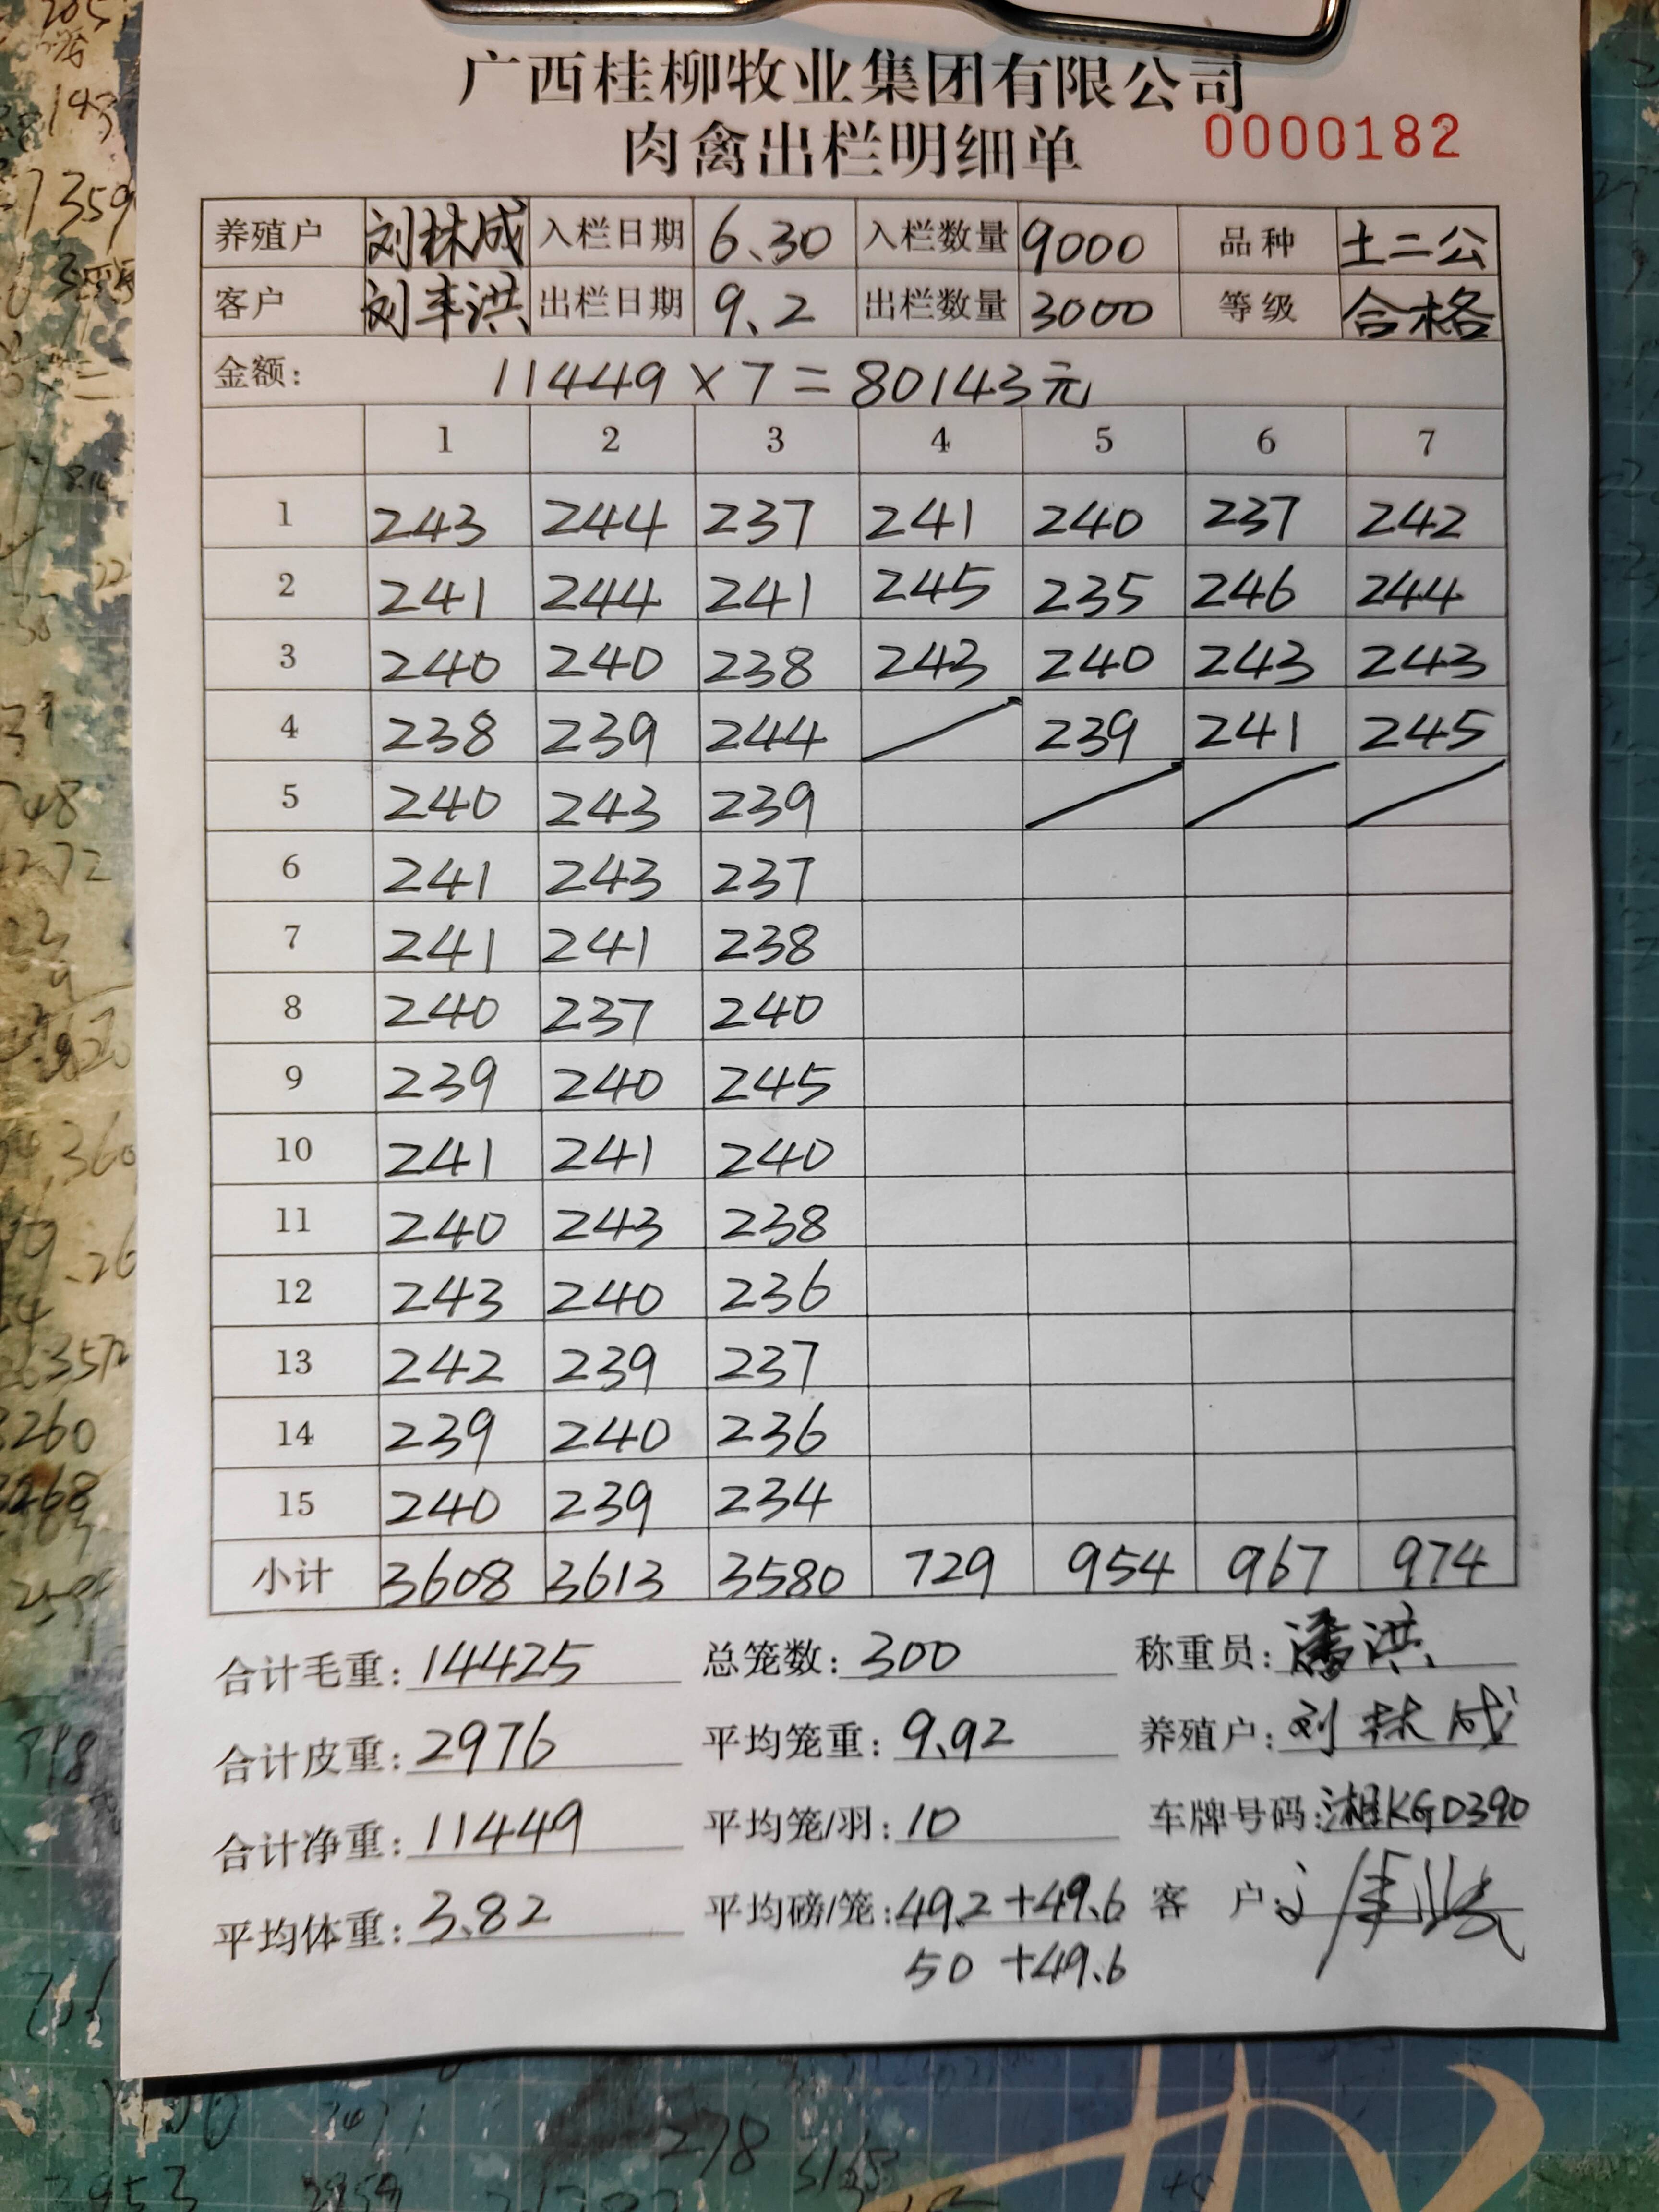 广西桂柳牧业集团有限公司
肉禽出栏明细单 0000182
养殖户 刘林成 入栏日期 6.30 入栏数量 9000 品种 土二公
客户 刘丰洪 出栏日期 9.2 出栏数量 3000 等级 合格
金额: 11449×7=80143元
1 2 3 4 5 6 7
1 243 244 237 241 240 237 242
2 241 244 241 245 235 246 244
3 240 240 238 243 240 243 243
4 238 239 244 239 241 245
5 240 243 239
6 241 243 237
7 241 241 238
8 240 237 240
9 239 240 245
10 241 241 240
11 240 243 238
12 243 240 236
13 242 239 237
14 239 240 236
15 240 239 234
小计 3608 3613 3580 729 954 967 974
合计毛重: 14425 总笼数: 300 称重员: 潘洪
合计皮重: 2976 平均笼重: 9.92 养殖户: 刘林成
合计净重: 11449 平均笼/羽: 10 车牌号码: 湘KGD390
平均体重: 3.82 平均磅/笼: 49.2+49.6 客户:
50 +49.6